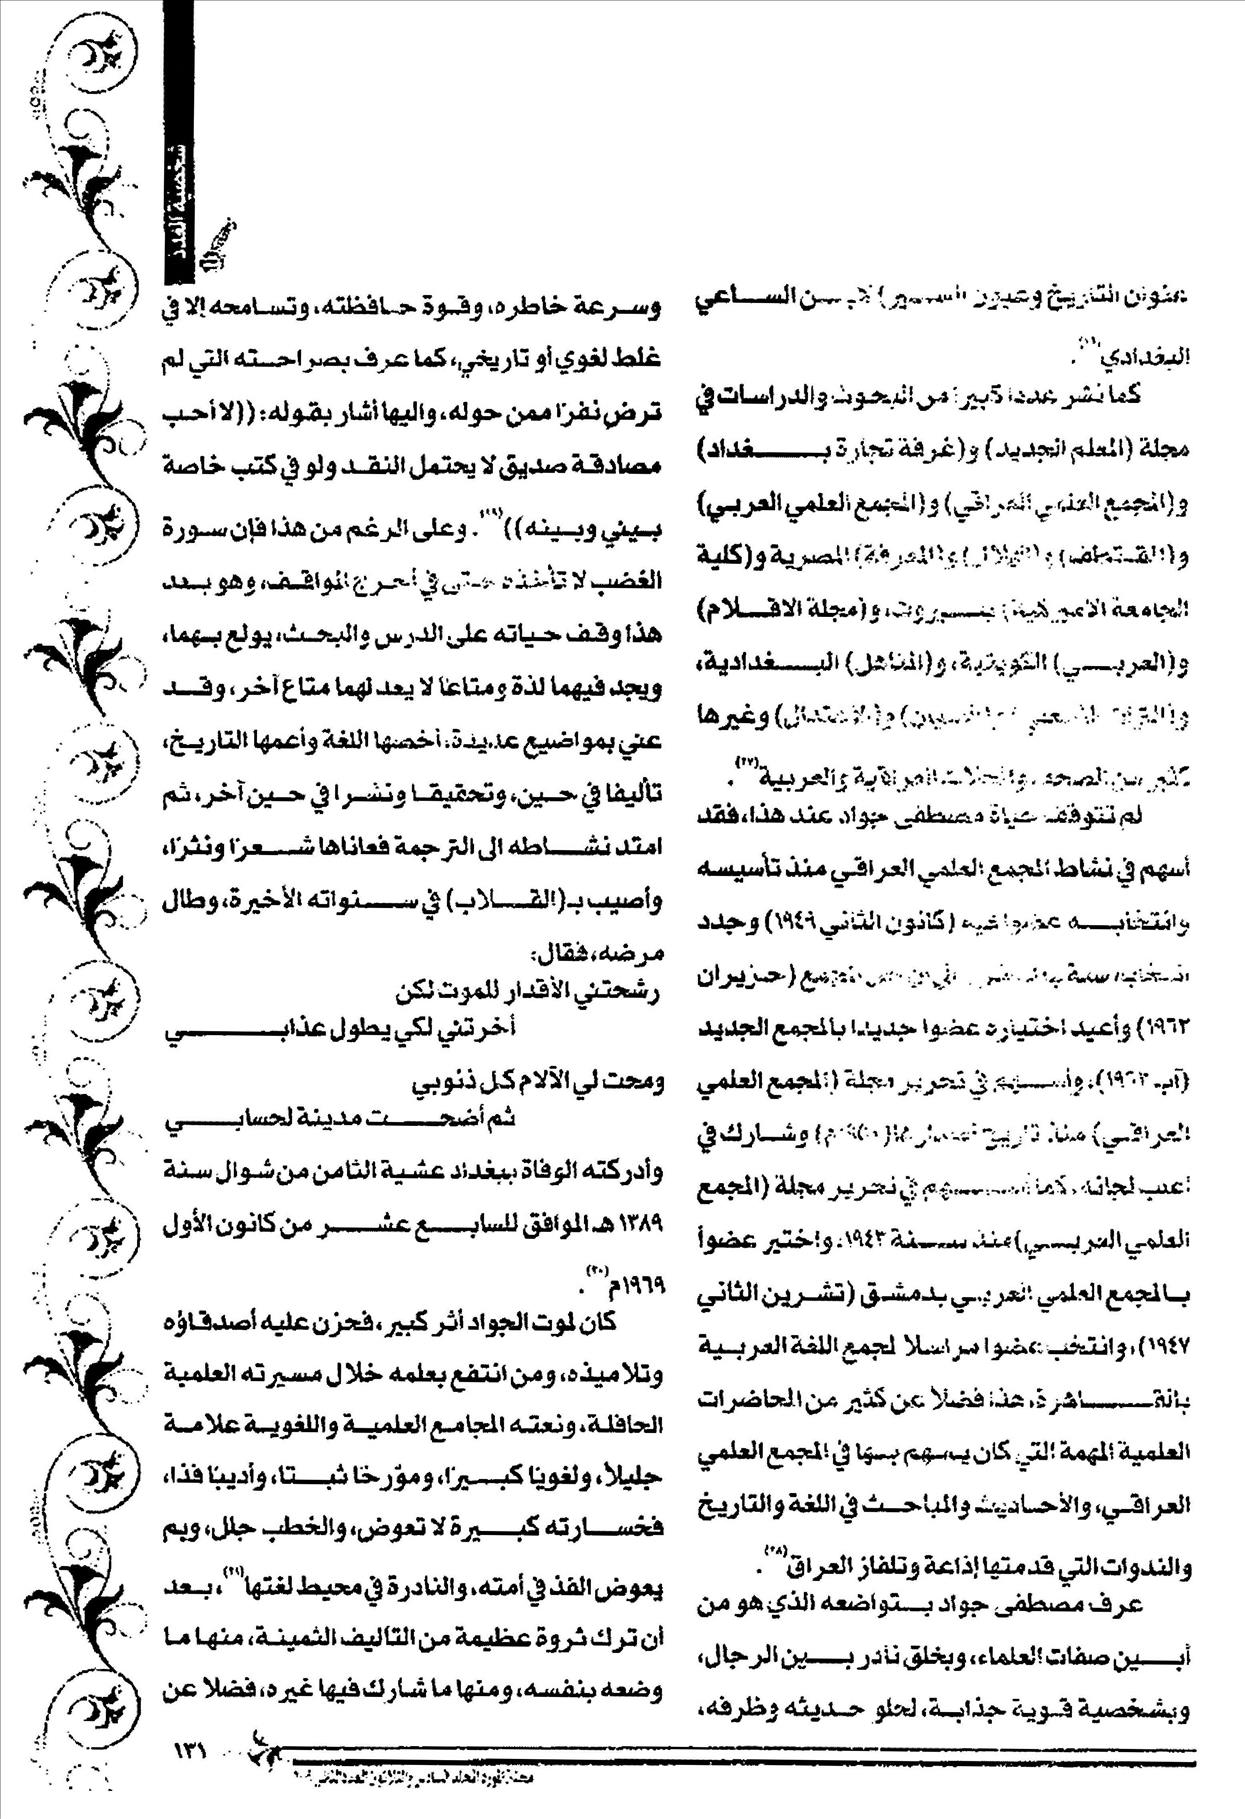 شخصية العدد
عنوان التاريخ وعيون السير) لابن الساعي
البغدادي(٢٦).
كما نشر عددا كبيرا من البحوث والدراسات في
مجلة (المعلم الجديد) و(غرفة تجارة بغداد)
و(المجمع العلمي العراقي) و(المجمع العلمي العربي)
و(المقتطف) و(الهلال) و(المعرفة) المصرية و(كلية
الجامعة الأميركية) ببيروت، و(مجلة الاقلام)
و(العربي) الكويتية، و(المناهل) البغدادية،
و(التراث الشعبي) و(الاعتدال) وغيرها
كثير من الصحف والمجلات العراقية والعربية(٢٧).
لم تتوقف حياة مصطفى جواد عند هذا، فقد
أسهم في نشاط المجمع العلمي العراقي منذ تأسيسه
وانتخابه عضوا فيه (كانون الثاني ١٩٤٩) وجدد
انتخابه سنة المجمع (حزيران
١٩٦٣) وأعيد اختياره عضوا جديدا بالمجمع الجديد
(آب ١٩٦٣)، وأسهم في تحرير مجلة (المجمع العلمي
العراقي) منذ تاريخ اصدارها (١٩٥٠م) وشارك في
أغلب لجانه، كما أسهم في تحرير مجلة (المجمع
العلمي العربي) منذ سنة ١٩٤٣، واختير عضواً
بالمجمع العلمي العربي بدمشق (تشرين الثاني
١٩٤٧)، وانتخب عضوا مراسلا لمجمع اللغة العربية
بالقاهرة، هذا فضلا عن كثير من المحاضرات
العلمية المهمة التي كان يسهم بها في المجمع العلمي
العراقي، والأحاديث والمباحث في اللغة والتاريخ
والندوات التي قدمتها إذاعة وتلفاز العراق(٢٨).
عرف مصطفى جواد بتواضعه الذي هو من
أبين صفات العلماء، وبخلق نادر بين الرجال،
وبشخصية قوية جذابة، لحلو حديثه وظرفه،
وسرعة خاطره، وقوة حافظته، وتسامحه إلا في
غلط لغوي أو تاريخي، كما عرف بصراحته التي لم
ترض نفرًا ممن حوله، واليها أشار بقوله: ((لا أحب
مصادقة صديق لا يحتمل النقد ولو في كتب خاصة
بيني وبينه))(٢٩). وعلى الرغم من هذا فإن سورة
الغضب لا تأخذه حتى في أحرج المواقف، وهو بعد
هذا وقف حياته على الدرس والبحث، يولع بهما،
ويجد فيهما لذة ومتاعًا لا يعد لهما متاع آخر، وقد
عني بمواضيع عديدة، أخصها اللغة وأعمها التاريخ،
تأليفا في حين، وتحقيقا ونشرا في حين آخر، ثم
امتد نشاطه الى الترجمة فعاناها شعرًا ونثرًا،
وأصيب بـ(القلاب) في سنواته الأخيرة، وطال
مرضه، فقال:
رشحتني الأقدار للموت لكن
أخرتني لكي يطول عذابي
ومحت لي الآلام كل ذنوبي
ثم أضحت مدينة لحسابي
وأدركته الوفاة ببغداد عشية الثامن من شوال سنة
١٣٨٩ هـ الموافق للسابع عشر من كانون الأول
١٩٦٩م(٣٠).
كان لموت الجواد أثر كبير، فحزن عليه أصدقاؤه
وتلاميذه، ومن انتفع بعلمه خلال مسيرته العلمية
الحافلة، ونعته المجامع العلمية واللغوية علامة
جليلاً، ولغويًا كبيرًا، ومؤرخًا ثبتا، وأديبًا فذا،
فخسارته كبيرة لا تعوض، والخطب جلل، وبم
يعوض الفذ في أمته، والنادرة في محيط لغتها(٣١)، بعد
أن ترك ثروة عظيمة من التآليف الثمينة، منها ما
وضعه بنفسه، ومنها ما شارك فيها غيره، فضلا عن
١٣١
مجلة المورد المجلد السادس والثلاثون العدد الثاني ٢٠٠٩